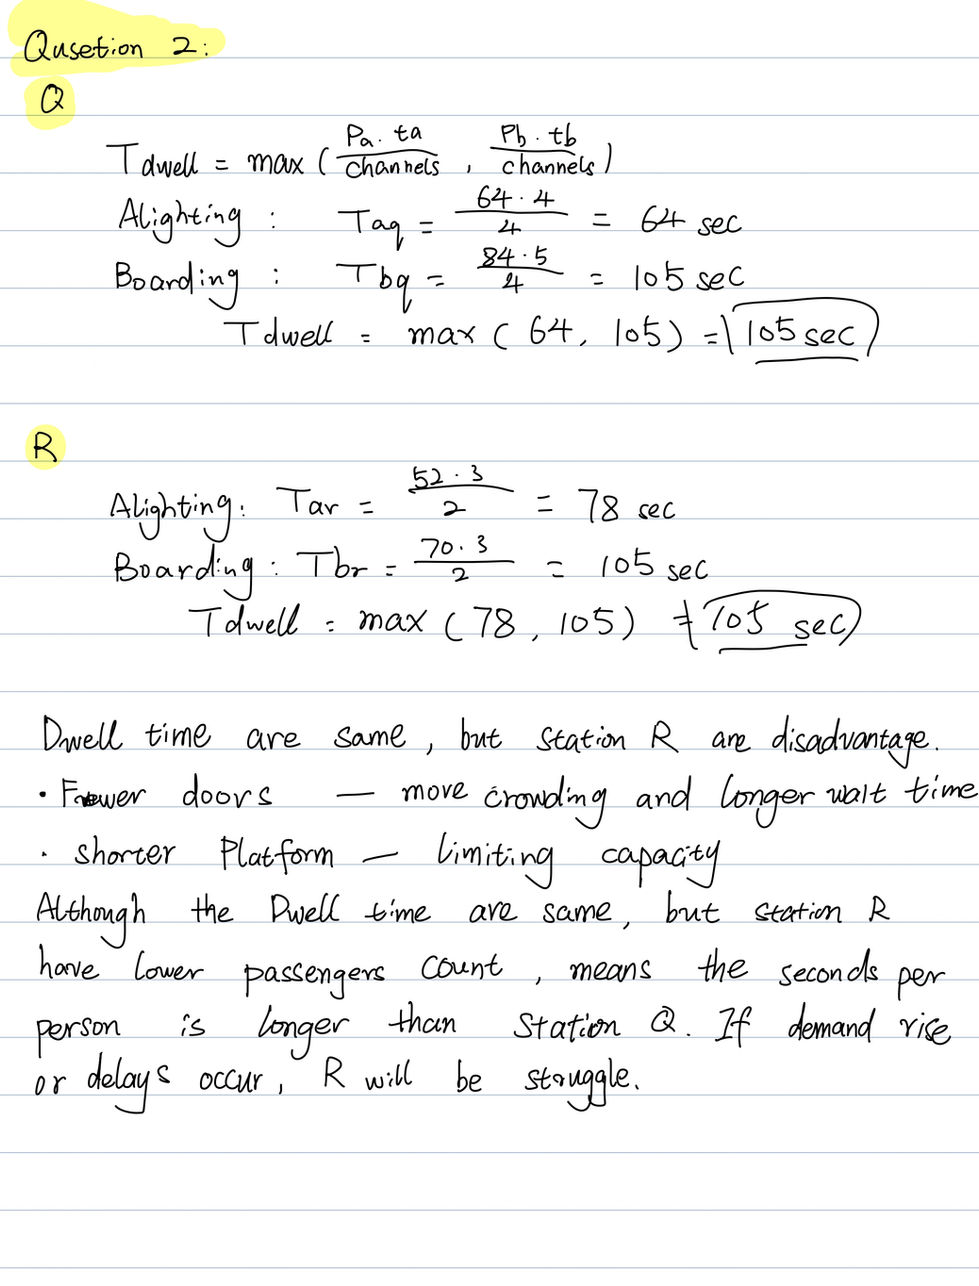 Qusetion 2:
Q
Tdwell = max ( Pa. ta / channels , Pb. tb / channels )
Alighting : Taq = 64 · 4 / 4 = 64 sec
Boarding : Tbq = 84 · 5 / 4 = 105 sec
Tdwell = max ( 64, 105 ) = 105 sec
R
Alighting: Tar = 52 · 3 / 2 = 78 sec
Boarding : Tbr = 70 · 3 / 2 = 105 sec
Tdwell = max ( 78 , 105 ) = 105 sec
Dwell time are same , but station R are disadvantage.
· Fewer doors — more crowding and longer wait time
· shorter Platform — limiting capacity
Although the Dwell time are same, but station R
have lower passengers count , means the seconds per
person is longer than Station Q. If demand rise
or delays occur, R will be struggle.